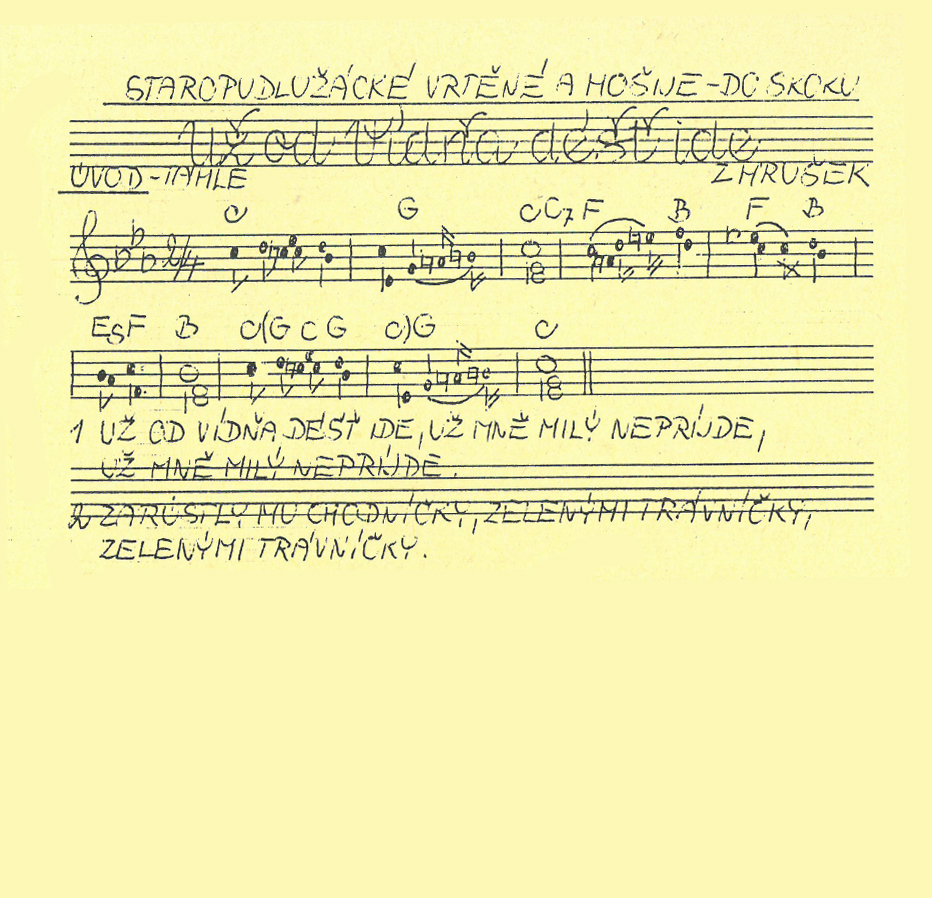 STAROPUDLUŽÁCKÉ VRTĚNÉ A HOŠIJE - DO SKOKU
Už od Vídňa déšť ide
ÚVOD - TÁHLE
Z HRUŠEK
C G C C7 F B F B
2/4
Es F B C(G C G C)G C
1 UŽ OD VÍDŇA DÉŠŤ IDE, UŽ MNĚ MILÝ NEPRÍJDE,
UŽ MNĚ MILÝ NEPRÍJDE.
2 ZARÚSTLY MU CHODNÍČKY, ZELENÝMI TRÁVNÍČKY,
ZELENÝMI TRÁVNÍČKY.